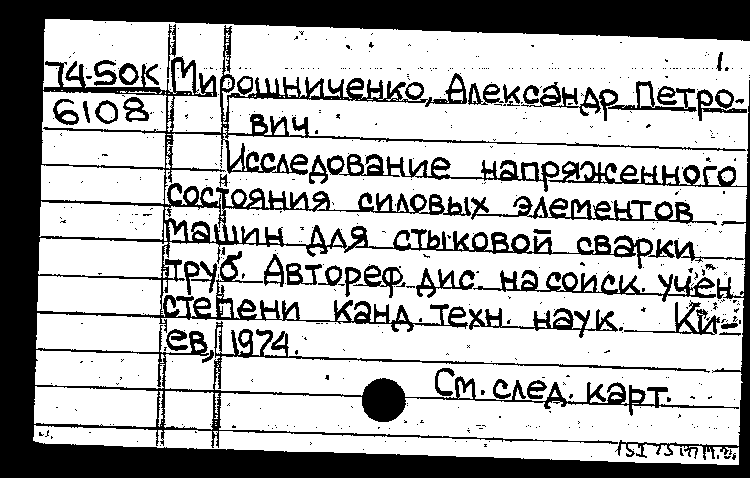 1.
74-50К Мирошниченко, Александр Петро-
6108 вич.
Исследование напряженного
состояния силовых элементов
машин для стыковой сварки
труб. Автореф. дис. на соиск. учен.
степени канд. техн. наук. Ки-
ев, 1974.
См. след. карт.